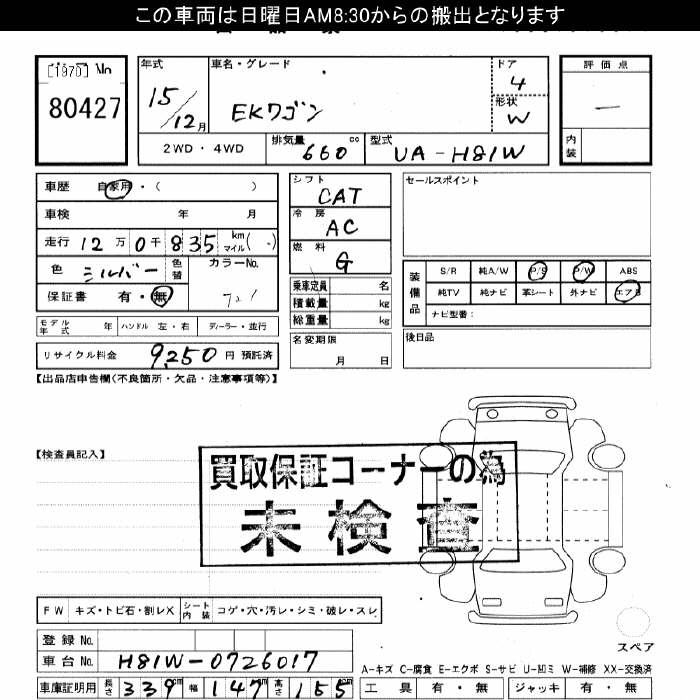 この車両は日曜日AM8:30からの搬出となります
[1970] No
80427
年式
15/12月
車名・グレード
EKワゴン
ドア
4
形状
W
評価点
—
内装
2WD・4WD
排気量
660 cc
型式
UA-H81W
車歴 自家用・( )
車検 年 月
走行 12万0千835 km マイル( )
色 シルバー 色替 カラーNo.
保証書 有・無
シフト
CAT
冷房
AC
燃料
G
乗車定員 名
積載量 kg
総重量 kg
セールスポイント
装備品
S/R 純A/W P/S P/W ABS
純TV 純ナビ 革シート 外ナビ エアB
ナビ型番:
モデル年式 年 ハンドル 左・右 ディーラー・並行
名変期限
月 日
後日品
リサイクル料金 9,250 円 預託済
【出品店申告欄(不良箇所・欠品・注意事項等)】
【検査員記入】
買取保証コーナーの為
未検査
FW キズ・トビ石・割レX シート内装 コゲ・穴・汚レ・シミ・破レ・スレ
登録No.
車台No. H81W-0726017
スペア
A-キズ C-腐食 E-エクボ S-サビ U-凹ミ W-補修 XX-交換済
車庫証明用 長さ 339 cm 幅 147 cm 高さ 155 cm
工具 有・無 ジャッキ 有・無